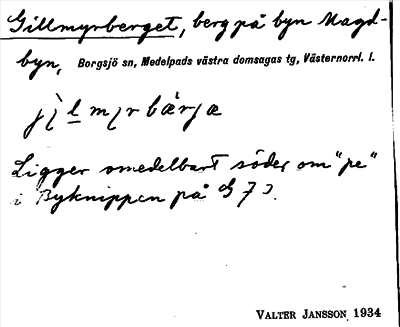 Gillmyrberget, berg på byn Magd-
byn, Borgsjö sn, Medelpads västra domsagas tg, Västernorrl. l.
Ligger omedelbart söder om "pe"
i Byknippen på
VALTER JANSSON 1934